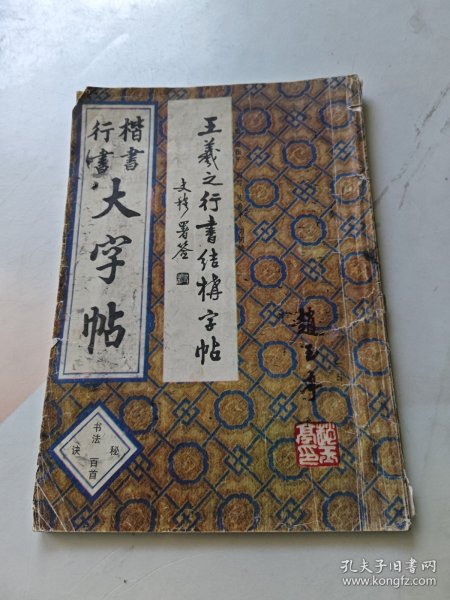 楷書
行書
大字帖
王羲之行書结構字帖
文彬署签
书法
秘
诀
百首
孔夫子旧书网
www.kongfz.com